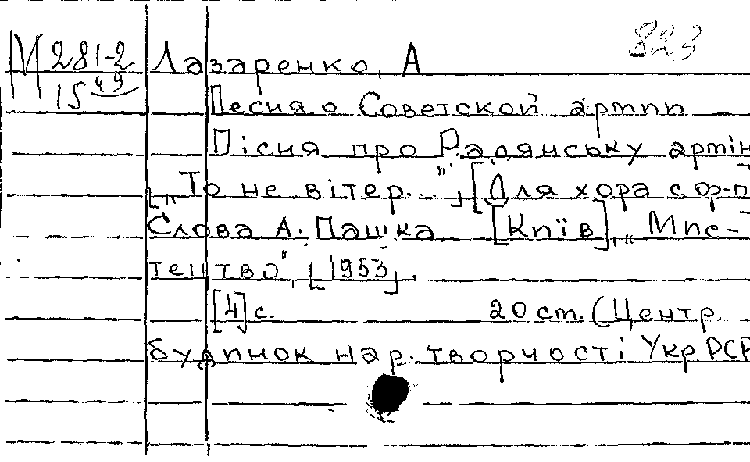 М 281-2 Лазаренко, А 823
1549
Песня о Советской армии
Пісня про Радянську армію
[„То не вітер..."] [Для хора с ф-п
Слова А. Пашка [Київ], „Мис-
тецтво", [1953].
[4] с. 20 cm. (Центр.
будинок нар. творчості Укр РСР